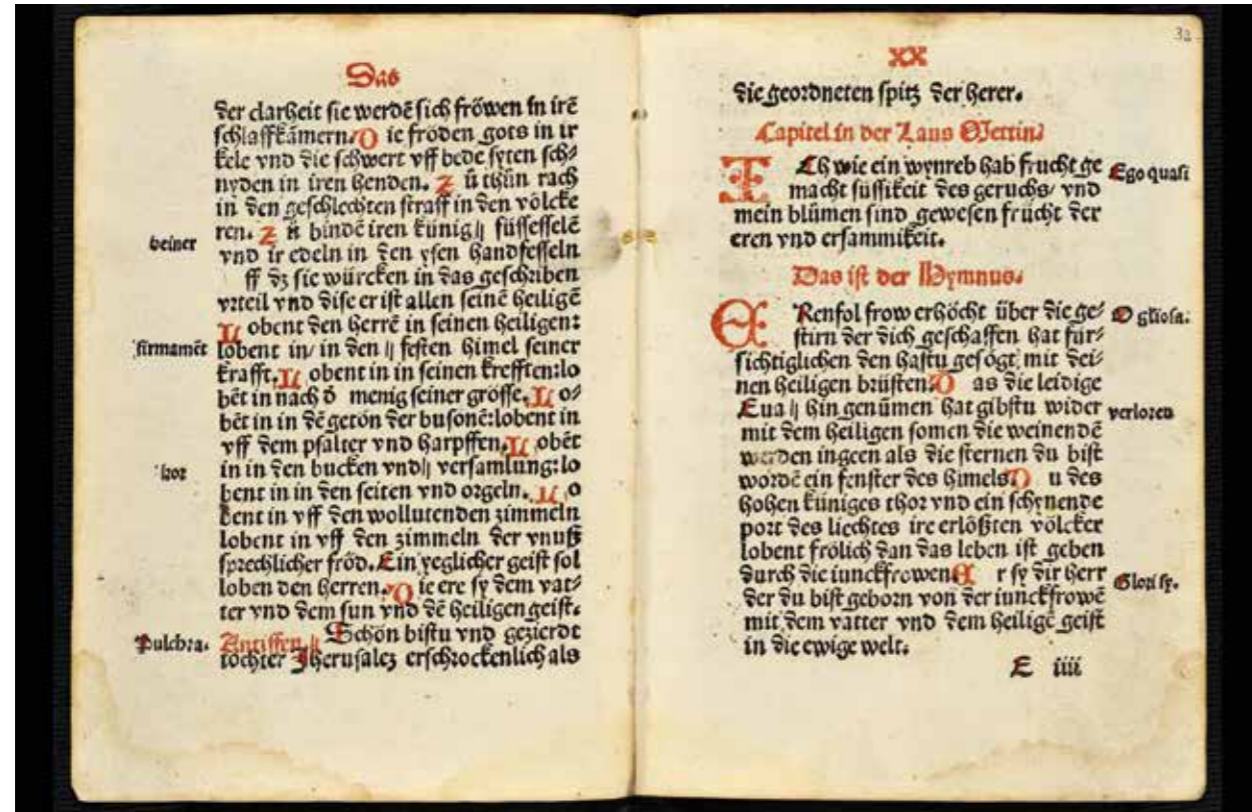 Das
der clarheit sie werdē sich fröwen in irē
schlaffkämern. D ie fröden gots in ir
kele vnd die schwert vff bede syten sch⸗
nyden in iren henden. Z ů thůn rach
in den geschlechten straff in den völcke
ren. Z ů bindē iren künig || füssesselē
beiner
vnd ir edeln in den ysen handfesseln
ff dz sie würcken in das geschriben
vrteil vnd dise er ist allen seinē heiligē
L obent den herrē in seinen heiligen:
firmamēt
lobent in/ in den || festen himel seiner
krafft. L obent in in seinen krefften: lo
bēt in nach d̄ menig seiner grösse. L o⸗
bēt in in dē getön der busonē: lobent in
vff dem psalter vnd harpffen. L obēt
kor
in in den bucken vnd|| versamlung: lo
bent in in den seiten vnd orgeln. L o
bent in vff den wollutenden zimmeln
lobent in vff den zimmeln der vnuß
sprechlicher fröd. Ein yeglicher geist sol
loben den herren. D ie ere sy dem vat⸗
ter vnd dem sun vnd dē heiligen geist.
Pulchra.
Antiffen || Schön bistu vnd gezierdt
tochter Jherusalez erschrockenlich als
32
XX
die geordneten spitz der herer.
Capitel in der Laus Mettin.
I Ch wie ein wynreb hab frucht ge
Ego quasi
macht sussikeit des geruchs/ vnd
mein blůmen sind gewesen frücht der
eren vnd ersammikeit.
Das ist der Hymnus.
E Renfol frow erhöcht über die ge⸗
O gl̄iosa.
stirn der dich geschaffen hat für⸗
sichtiglichen den hastu gesögt mit dei⸗
nen heiligen brüsten. D as die leidige
Eua || hin genümen hat gibstu wider
verloren
mit dem heiligen somen die weinendē
werden ingeen als die sternen du bist
wordē ein fenster des himels D u des
hohen küniges thor vnd ein schynende
port des liechtes ire erlößten völcker
lobent frölich dan das leben ist geben
durch die iunckfrowen E r sy dir herr
Glori sy.
der du bist geborn von der iunckfrowē
mit dem vatter vnd dem heiligē geist
in die ewige welt.
E iiii